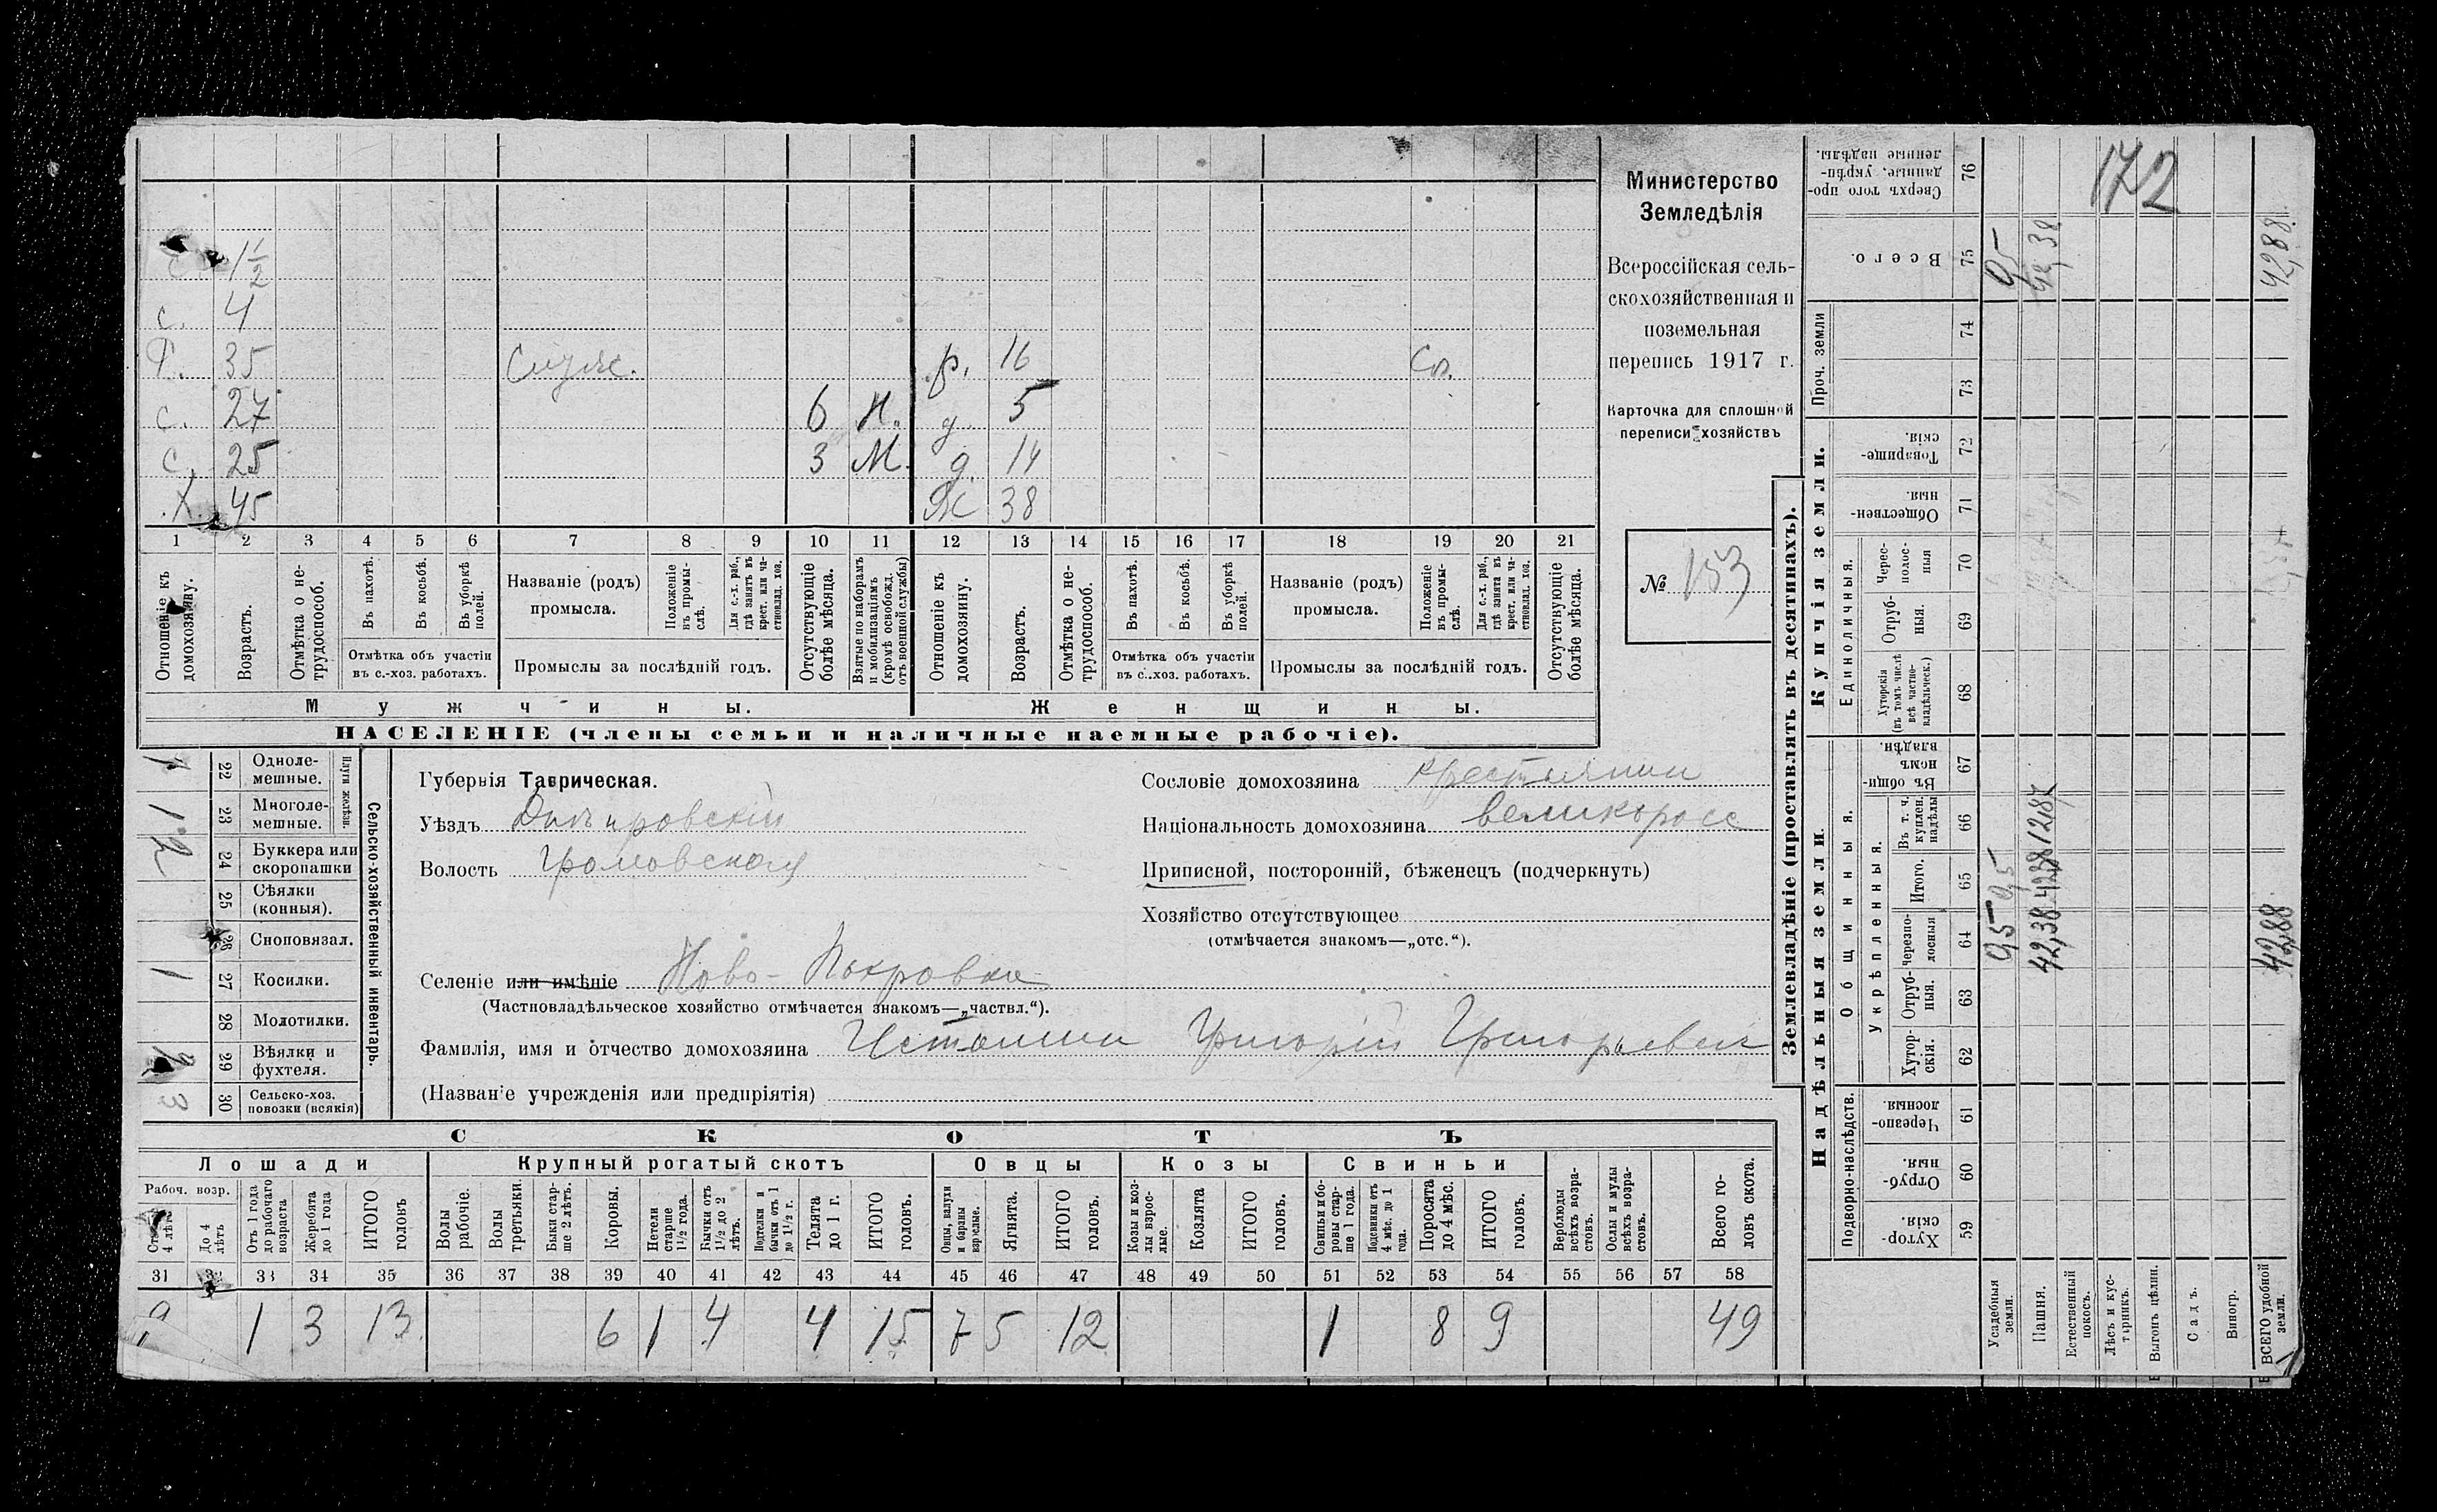 Министерство
Земледѣлія
Всероссійская сель-
скохозяйственная и
поземельная
перепись 1917 г.
Карточка для сплошной
переписи хозяйствъ
№ 153
172
1½
с. 4
Р. 35 Служ. р. 16 Сл.
с. 27 6 М. д. 5
с. 25 3 М. д. 14
Х. 45 Ж 38
1 2 3 4 5 6 7 8 9 10 11 12 13 14 15 16 17 18 19 20 21
Отношеніе къ домохозяину.
Возрастъ.
Отмѣтка о не-трудоспособ.
Въ пахотѣ.
Въ косьбѣ.
Въ уборкѣ полей.
Отмѣтка объ участіи
въ с.-хоз. работахъ.
Названіе (родъ)
промысла.
Положеніе въ промы-слѣ.
Для с.-х. раб., гдѣ занятъ въ крест. или ча-стновлад. хоз.
Промыслы за послѣдній годъ.
Отсутствующіе болѣе мѣсяца.
Взятые по наборамъ и мобилизаціямъ (кромѣ освобожд. отъ военной службы)
Отношеніе къ домохозяину.
Возрастъ.
Отмѣтка о не-трудоспособ.
Въ пахотѣ.
Въ косьбѣ.
Въ уборкѣ полей.
Отмѣтка объ участіи
въ с..хоз. работахъ.
Названіе (родъ)
промысла.
Положеніе въ промы-слѣ.
Для с.-х. раб., гдѣ занята въ крест. или ча-стновлад. хоз.
Промыслы за послѣдній годъ.
Отсутствующіе болѣе мѣсяца.
Мужчины. Женщины.
НАСЕЛЕНІЕ (члены семьи и наличные наемные рабочіе).
Сельско-хозяйственный инвентарь.
Плуги желѣзн.
22 Одноле-мешные.
1 23 Многоле-мешные.
24 Буккера или скоропашки
25 Сѣялки (конныя).
26 Сноповязал.
1 27 Косилки.
28 Молотилки.
29 Вѣялки и фухтеля.
3 30 Сельско-хоз. повозки (всякія)
Губернія Таврическая.
Уѣздъ Днѣпровскій
Волость Громовская
Селеніе или имѣніе Ново-Покровка
(Частновладѣльческое хозяйство отмѣчается знакомъ—„частвл.“).
Фамилія, имя и отчество домохозяина Истомин Григорій Григорьевич
(Названіе учрежденія или предпріятія)
Сословіе домохозяина крестьянин
Національность домохозяина великоросс
Приписной, посторонній, бѣженецъ (подчеркнуть)
Хозяйство отсутствующее
(отмѣчается знакомъ—„отс.“).
СКОТЪ
Лошади Крупный рогатый скотъ Овцы Козы Свиньи
Рабоч. возр.
До 4 лѣтъ
Отъ 1 года до рабочаго возраста
Жеребята до 1 года
ИТОГО головъ
Волы рабочіе.
Волы третьяки.
Быки стар-ше 2 лѣтъ.
Коровы.
Нетели старше 1½ года.
Бычки отъ 1½ до 2 лѣтъ.
Подтелки и бычки отъ 1 до 1½ г.
Телята до 1 г.
ИТОГО головъ.
Овцы, валухи и бараны взрослые.
Ягнята.
ИТОГО головъ.
Козы и коз-лы взрос-лые.
Козлята
ИТОГО головъ.
Свиньи и бо-ровы стар-ше 1 года.
Подсвинки отъ 4 мѣс. до 1 года.
Поросята до 4 мѣс.
ИТОГО головъ.
Верблюды всѣхъ возра-стовъ.
Ослы и мулы всѣхъ возра-стовъ.
Всего го-ловъ скота.
31 32 33 34 35 36 37 38 39 40 41 42 43 44 45 46 47 48 49 50 51 52 53 54 55 56 57 58
9 1 3 13 6 1 4 4 15 7 5 12 1 8 9 49
Землевладѣніе (проставлять въ десятинахъ).
Надѣльныя земли.
Купчія земли.
Проч. земли
Подворно-наслѣдств.
Общинныя.
Укрѣпленныя.
Единоличныя.
Хутор-скія. 59
Отруб-ныя. 60
Черезпо-лосныя. 61
Хутор-скія. 62
Отруб-ныя. 63
Черезпо-лосныя 64
Итого. 65
Въ т. ч. куплен. надѣлы 66
Въ общи-номъ владѣн. 67
Хуторскія (въ томъ числѣ всѣ частно-владѣльческ.) 68
Отруб-ныя. 69
Черес-полос-ныя 70
Обществен-ныя. 71
Товарище-скія. 72
73
74
Всего. 75
Сверхъ того про-данные, укрѣп-ленные надѣлы. 76
Усадебныя земли. 0,5 0,5 0,5
Пашня. 42,38 42,38 12,87 42,38
Естественный покосъ.
Лѣсъ и кус-тарникъ.
Выгонъ цѣлин.
Садъ.
Виногр.
ВСЕГО удобной земли. 42,88 42,88